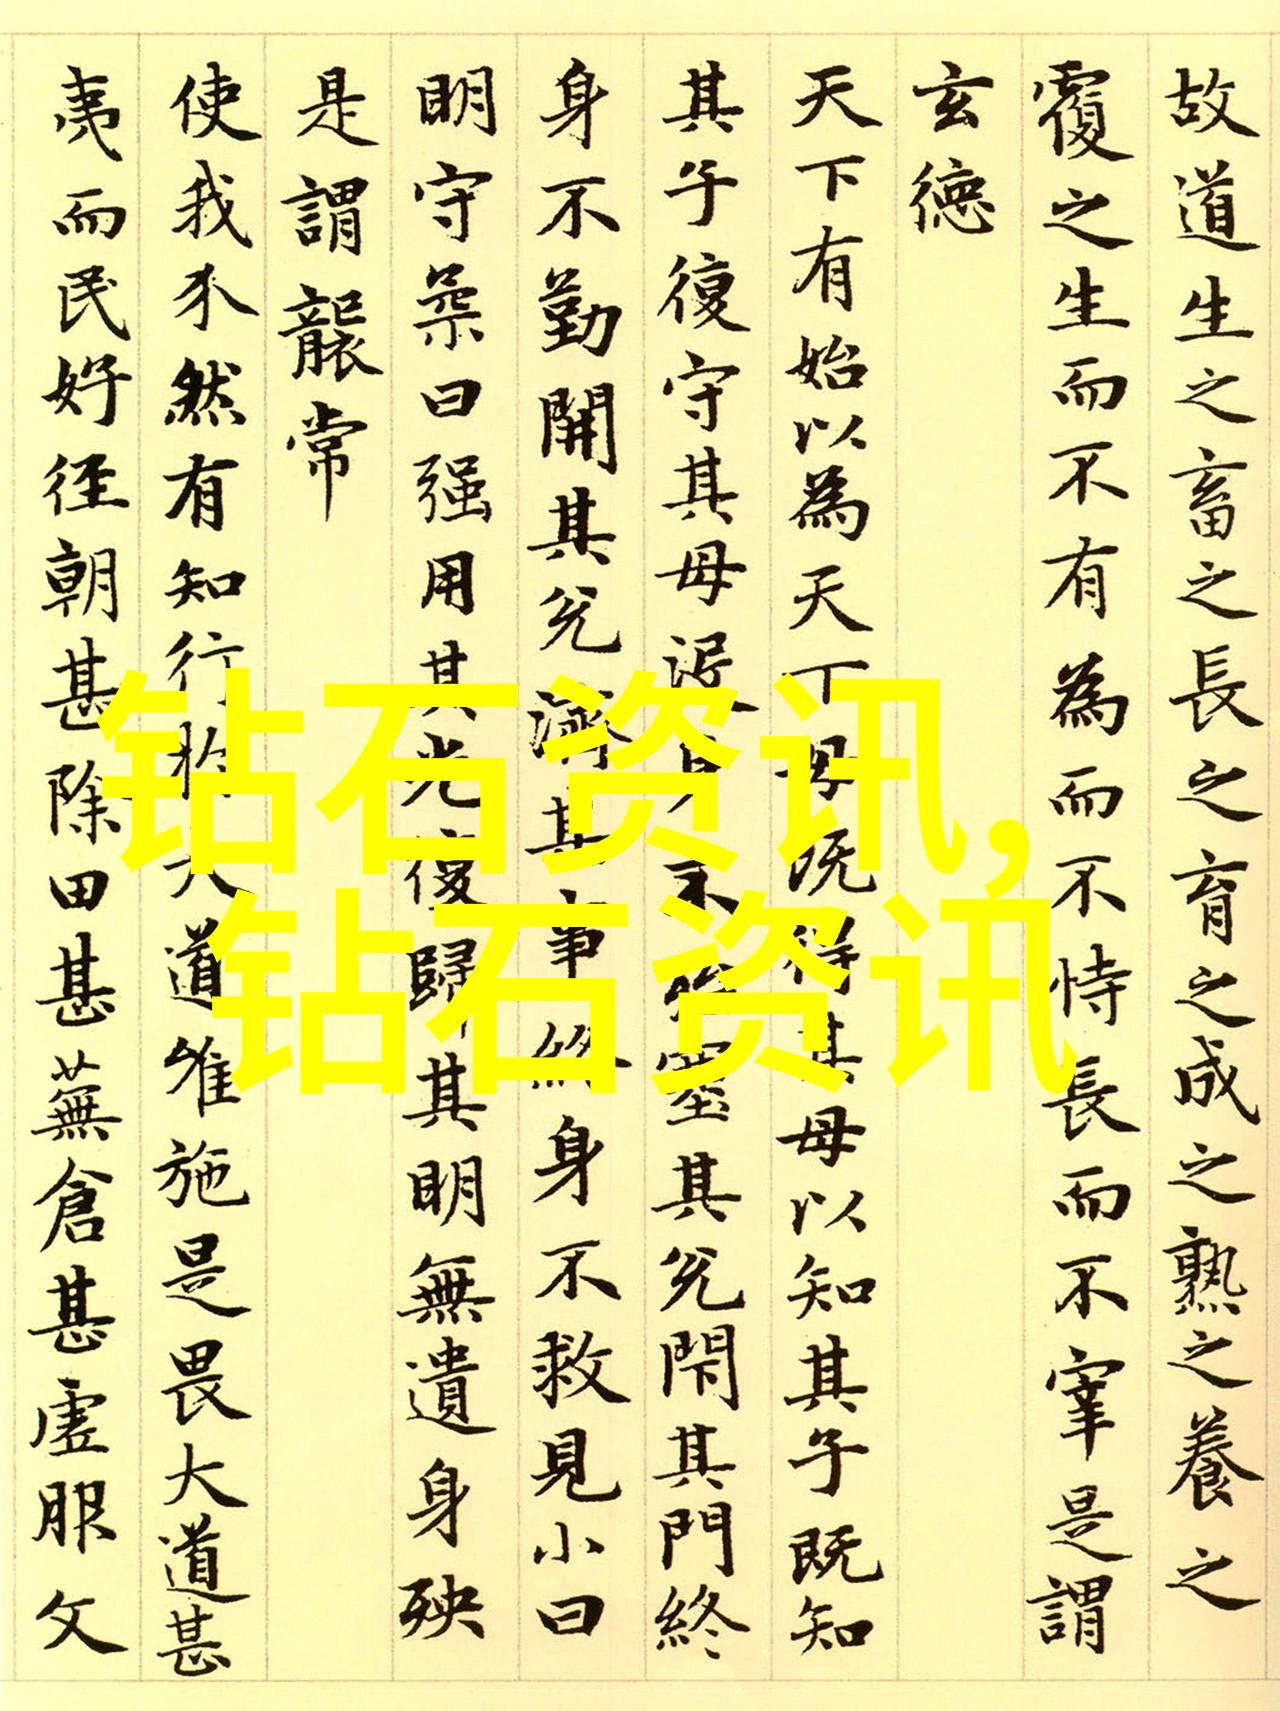 故道生之畜之長之育之成之熟之養之
覆之生而不有為而不恃長而不宰是謂
玄德
天下有始以為天下母既得其母以知其子既知
其子復守其母沒身不殆塞其兌閉其門終
身不勤開其兌濟其事終身不救見小曰
明守柔曰强用其光復歸其明無遺身殃
是謂襲常
使我介然有知行於大道唯施是畏大道甚
夷而民好徑朝甚除田甚蕪倉甚虛服文
钻石资讯,
钻石资讯